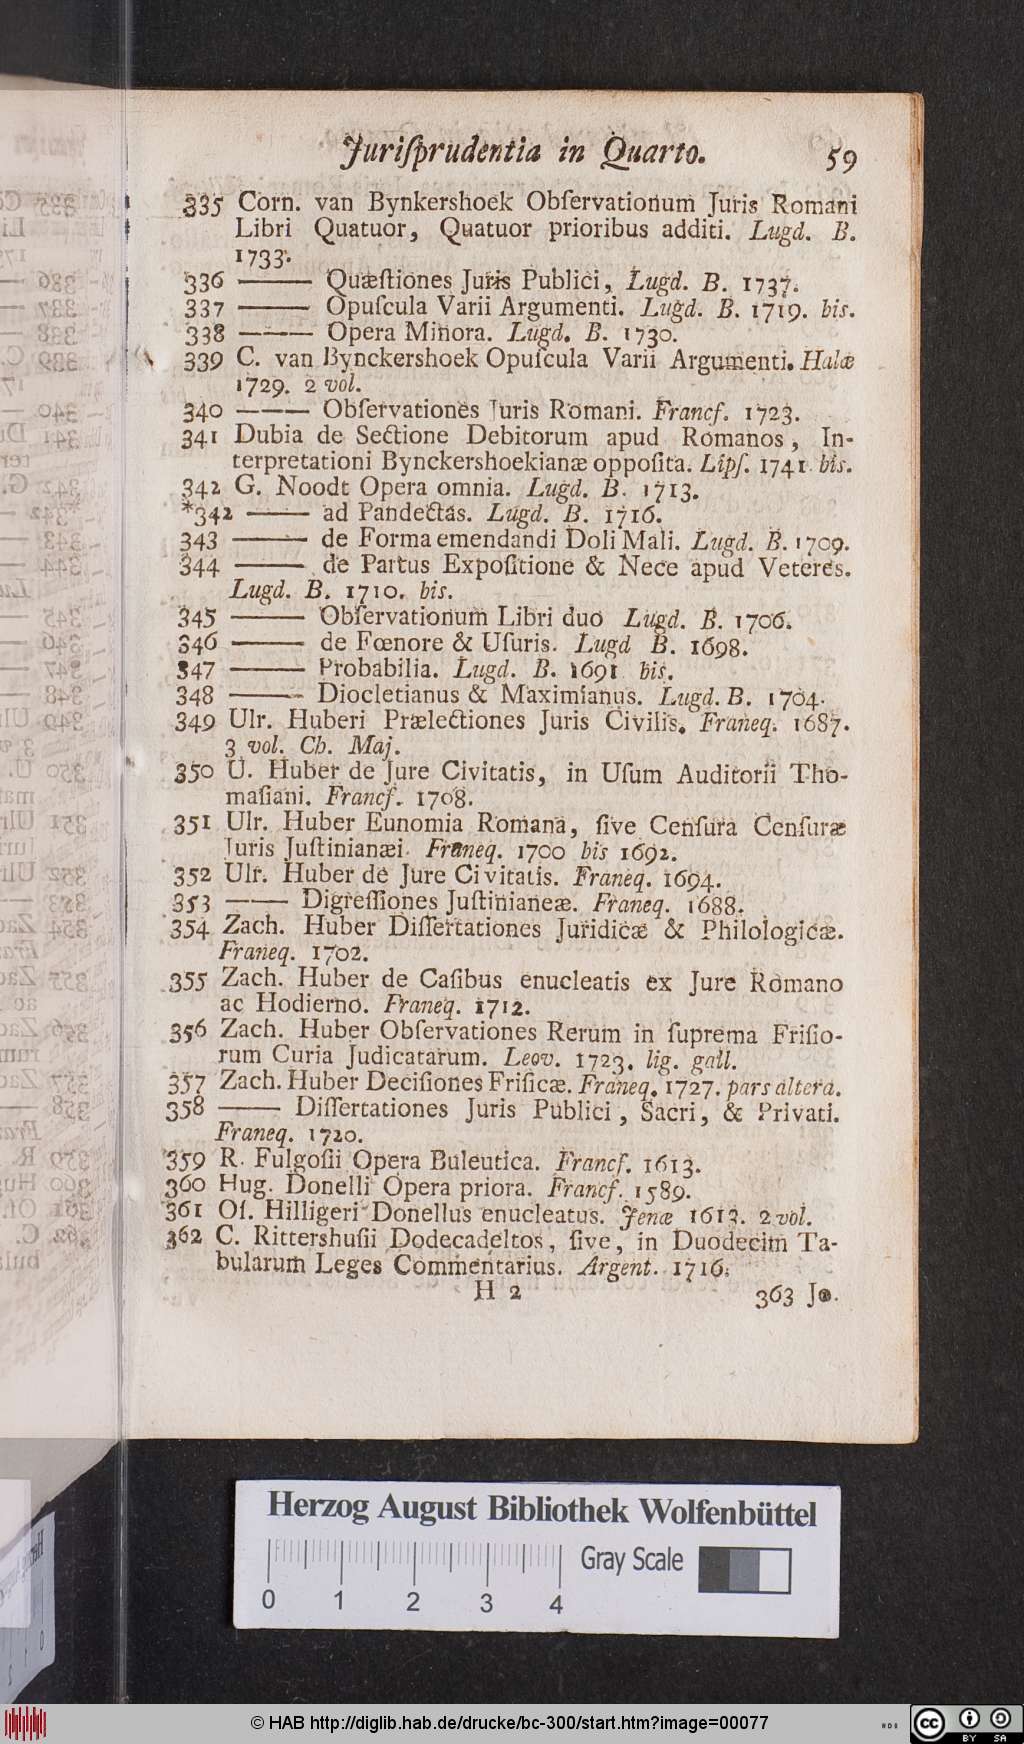 Juriſprudentia in Quarto. 59
335 Corn. van Bynkershoek Obſervationum Juris Romani
Libri Quatuor, Quatuor prioribus additi. Lugd. B.
1733.
336 ——— Quæſtiones Juris Publici, Lugd. B. 1737.
337 ——— Opuſcula Varii Argumenti. Lugd. B. 1719. bis.
338 ——— Opera Minora. Lugd. B. 1730.
339 C. van Bynckershoek Opuſcula Varii Argumenti. Halæ
1729. 2 vol.
340 ——— Obſervationes Juris Romani. Francf. 1723.
341 Dubia de Sectione Debitorum apud Romanos, In-
terpretationi Bynckershoekianæ oppoſita. Lipſ. 1741. bis.
342 G. Noodt Opera omnia. Lugd. B. 1713.
*342 ——— ad Pandectas. Lugd. B. 1716.
343 ——— de Forma emendandi Doli Mali. Lugd. B. 1709.
344 ——— de Partus Expoſitione & Nece apud Veteres.
Lugd. B. 1710. bis.
345 ——— Obſervationum Libri duo Lugd. B. 1706.
346 ——— de Fœnore & Uſuris. Lugd B. 1698.
347 ——— Probabilia. Lugd. B. 1691 bis.
348 ——— Diocletianus & Maximianus. Lugd. B. 1704.
349 Ulr. Huberi Prælectiones Juris Civilis. Franeq. 1687.
3 vol. Ch. Maj.
350 U. Huber de Jure Civitatis, in Uſum Auditorii Tho-
maſiani. Francf. 1708.
351 Ulr. Huber Eunomia Romana, ſive Cenſura Cenſuræ
Juris Juſtinianæi. Franeq. 1700 bis 1692.
352 Ulr. Huber de Jure Civitatis. Franeq. 1694.
353 ——— Digreſſiones Juſtinianeæ. Franeq. 1688.
354 Zach. Huber Diſſertationes Juridicæ & Philologicæ.
Franeq. 1702.
355 Zach. Huber de Caſibus enucleatis ex Jure Romano
ac Hodierno. Franeq. 1712.
356 Zach. Huber Obſervationes Rerum in ſuprema Friſio-
rum Curia Judicatarum. Leov. 1723. lig. gall.
357 Zach. Huber Deciſiones Friſicæ. Franeq. 1727. pars altera.
358 ——— Diſſertationes Juris Publici, Sacri, & Privati.
Franeq. 1720.
359 R. Fulgoſii Opera Buleutica. Francf. 1613.
360 Hug. Donelli Opera priora. Francf. 1589.
361 Oſ. Hilligeri Donellus enucleatus. Jenæ 1613. 2 vol.
362 C. Rittershuſii Dodecadeltos, ſive, in Duodecim Ta-
bularum Leges Commentarius. Argent. 1716.
H 2 363 Jo.
Herzog August Bibliothek Wolfenbüttel
Gray Scale
0 1 2 3 4
© HAB http://diglib.hab.de/drucke/bc-300/start.htm?image=00077
cc BY SA